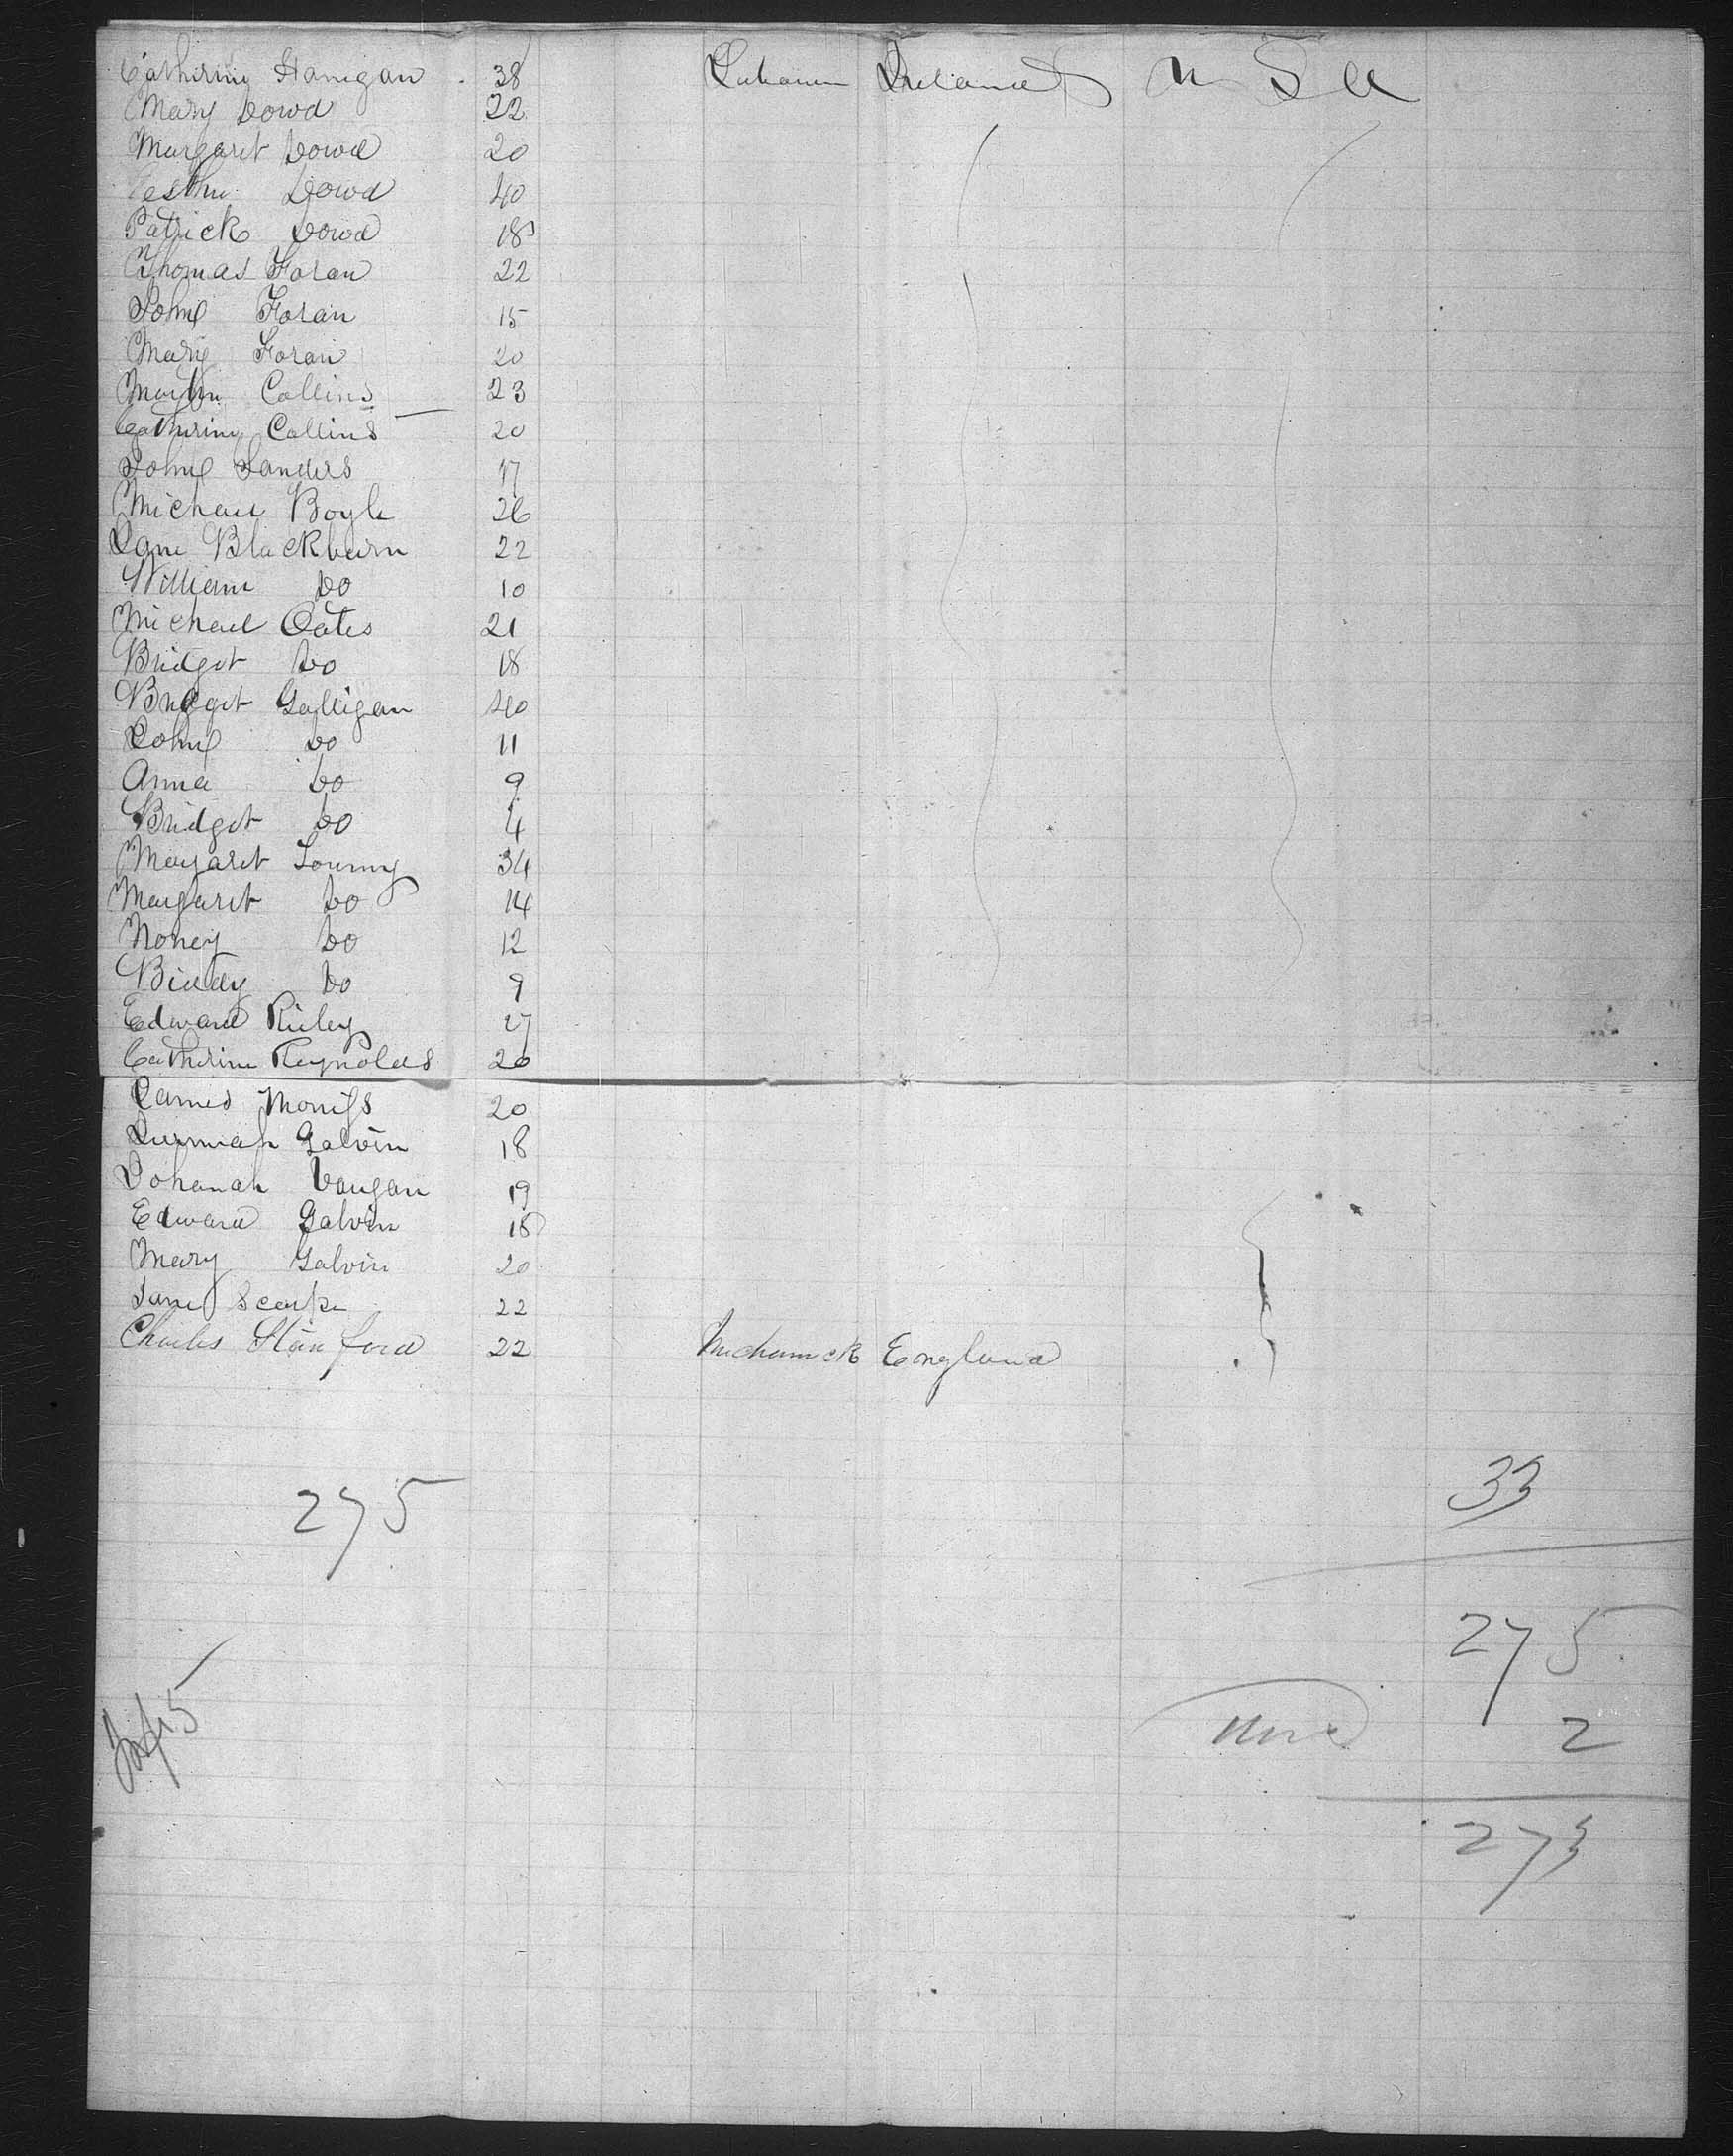 Catherine Hanigan 38 Ireland U S A
Mary Dowd 22
Margaret Dowd 20
Dowd 40
Patrick Dowd 18
Thomas Foran 22
John Foran 15
Mary Foran 20
Martin Collins 23
Catherine Collins 20
John Sanders 17
Michael Boyle 26
Jane Blackburn 22
William Do 10
Michael Oates 21
Bridget Do 18
Bridget Galligan 40
John Do 11
Anna Do 9
Bridget Do 4
Margaret 34
Margaret Do 14
Honey Do 12
Biddy Do 9
Edward Rieley 27
Catherine Reynolds 20
James 20
Galvin 18
Johanah Vaugan 19
Edward Galvin 18
Mary Galvin 20
Jane 22
Charles Stanford 22 Mechanick England
33
275
275
2
273